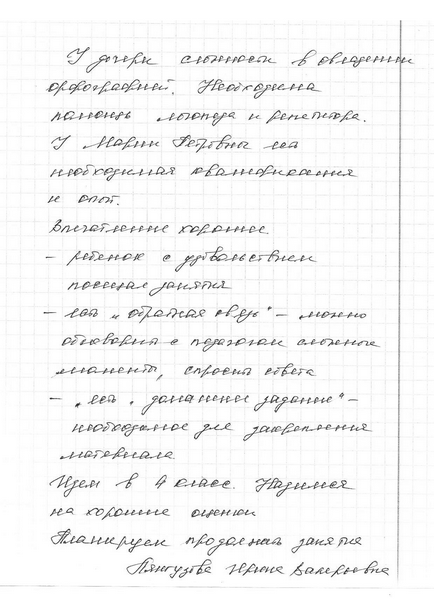 У дочери сложности в овладении
орфографией. Необходима
помощь логопеда и репетитора.
У Марии Петровны есть
необходимая квалификация
и опыт.
Впечатление хорошее.
– ребенок с удовольствием
посещал занятия
– есть „обратная связь" – можно
обговорить с педагогом сложные
моменты, спросить совета
– „есть „домашнее задание" –
необходимое для закрепления
материала
Идем в 4 класс. Надеемся
на хорошие оценки
Планируем продолжать занятия
Ирина Валерьевна